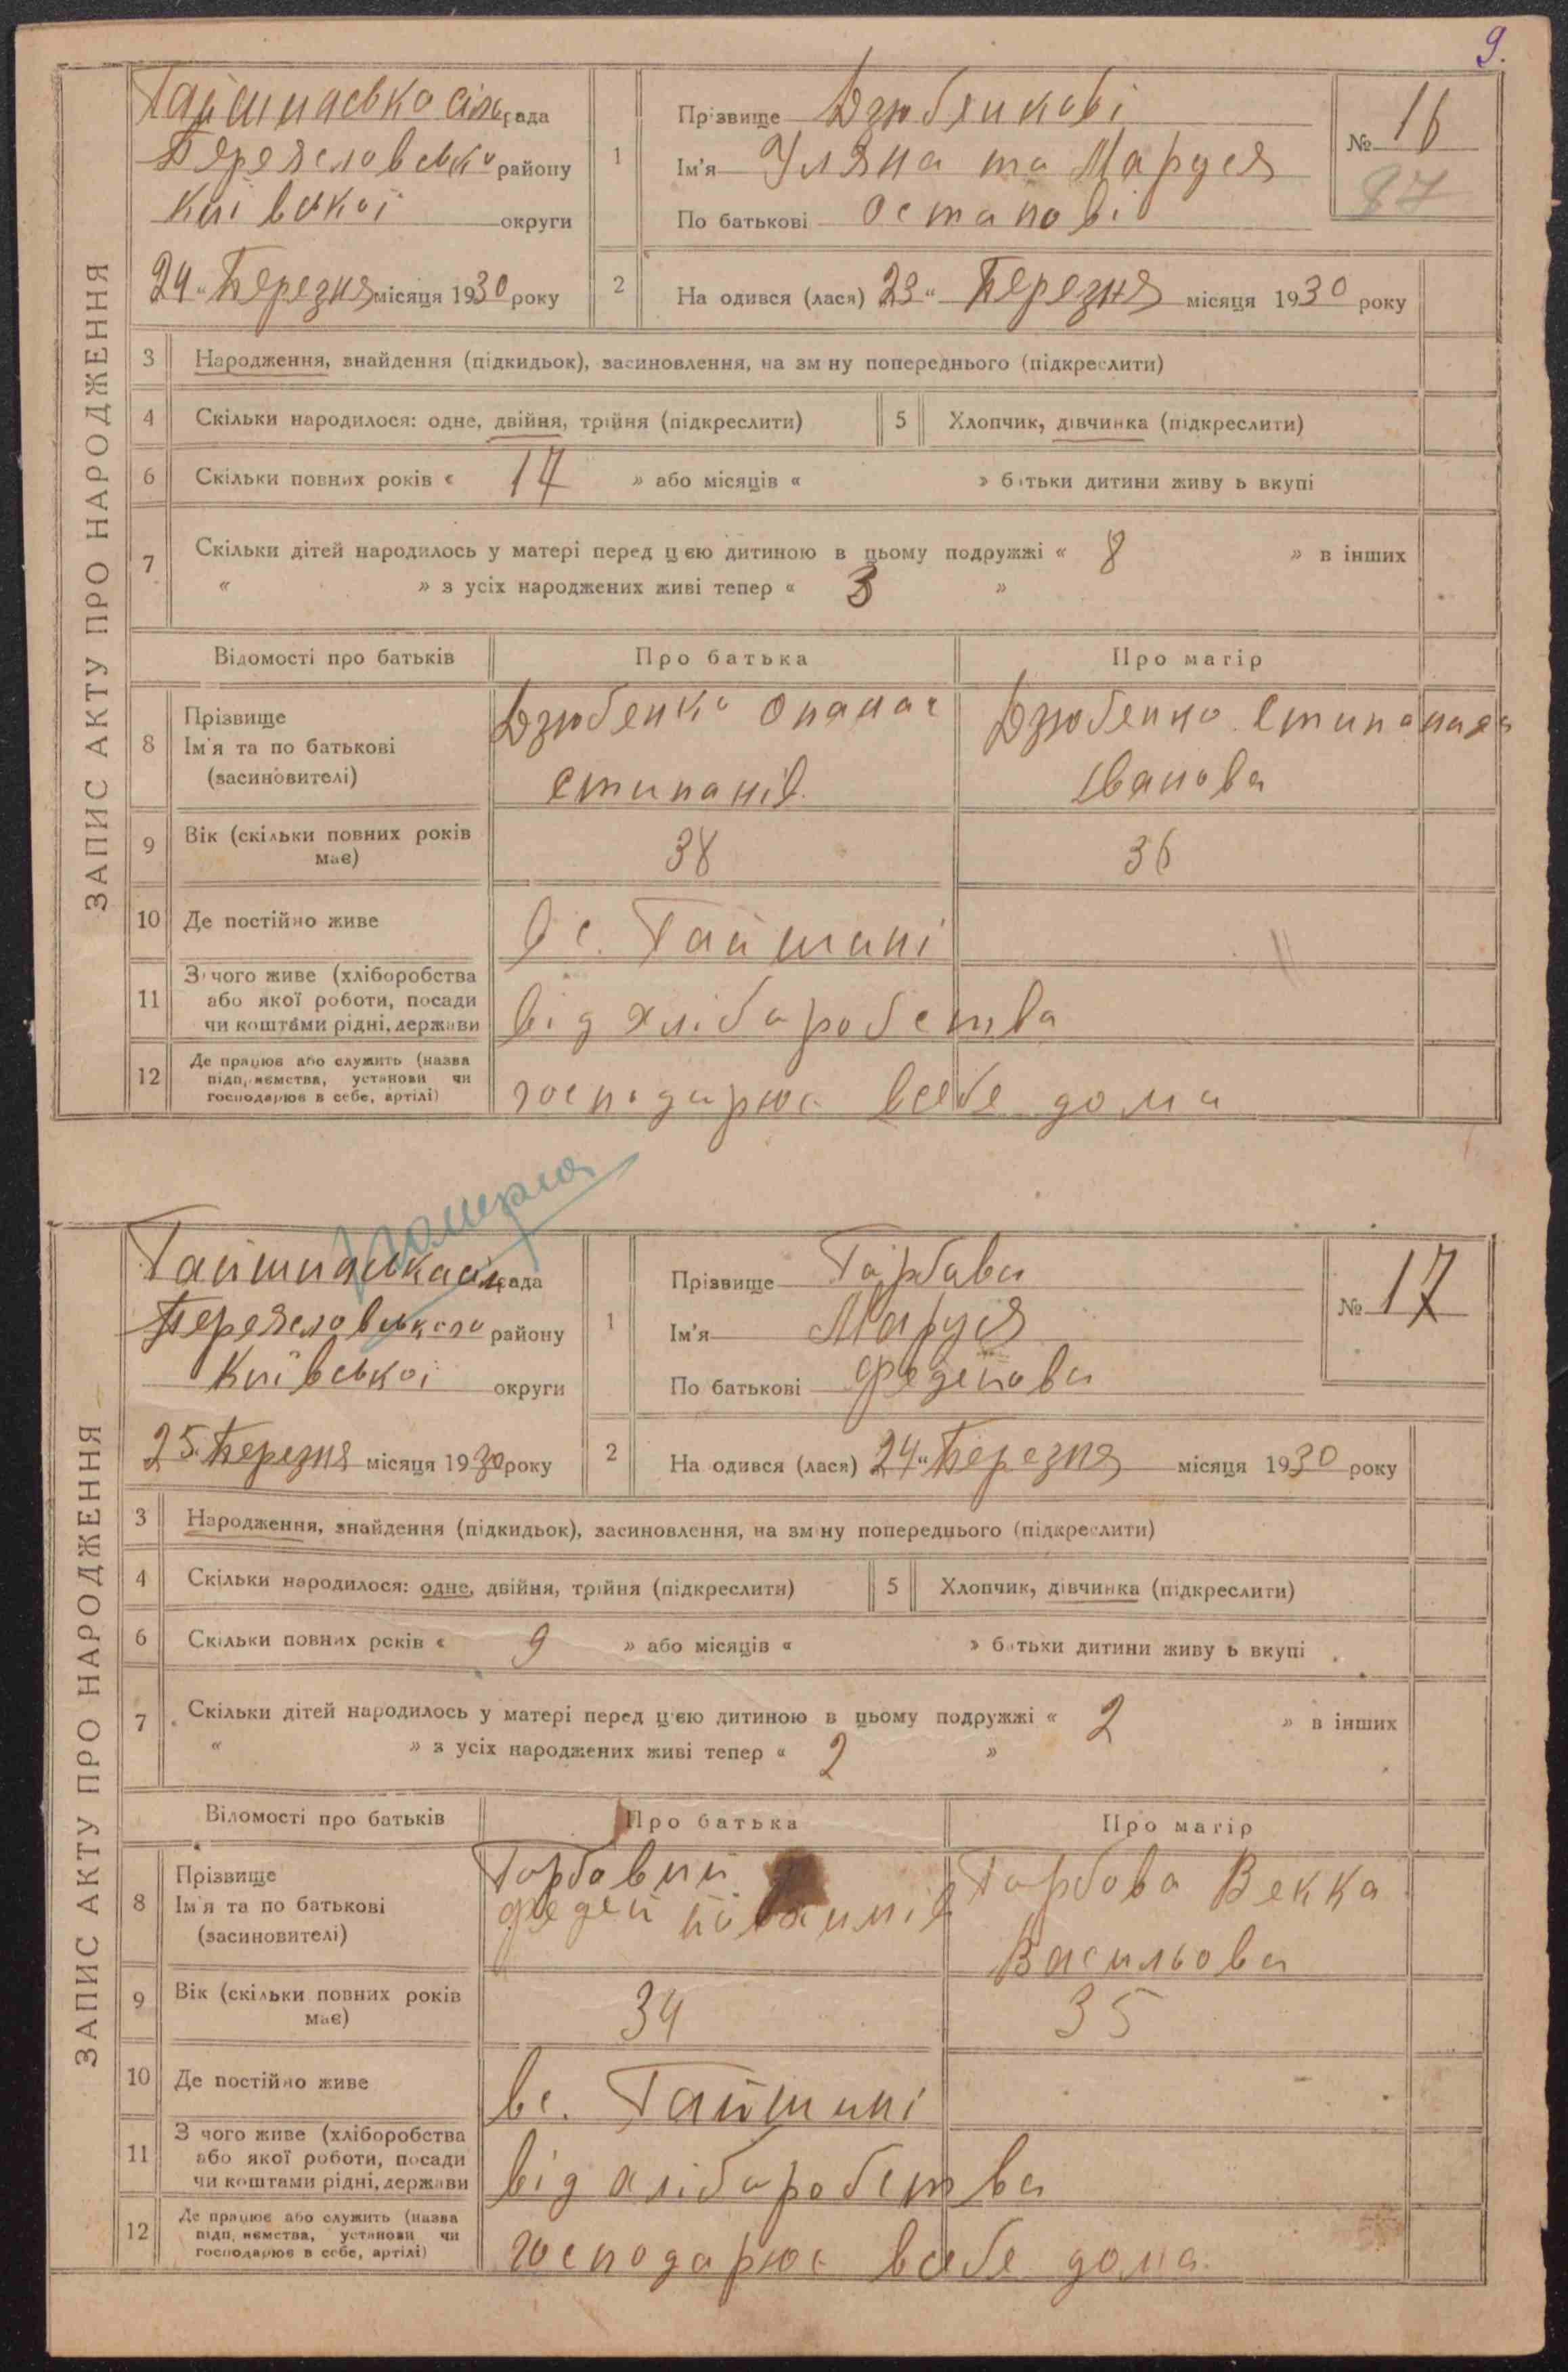 9.
ЗАПИС АКТУ ПРО НАРОДЖЕННЯ
Гайшинська сільрада
Переяславсько району
Київської округи
24 „ Березня місяця 1930 року
1
Прізвище Дзюбенкові
Ім'я Уляна та Маруся
По батькові Остапові
№ 16
87
2
На одився (лася) 23 „ Березня місяця 1930 року
3 Народження, знайдення (підкидьок), засиновлення, на зм ну попереднього (підкреслити)
4 Скільки народилося: одне, двійня, трійня (підкреслити) 5 Хлопчик, дівчинка (підкреслити)
6 Скільки повних років « 17 » або місяців « » батьки дитини живу ь вкупі
7 Скільки дітей народилось у матері перед цією дитиною в цьому подружжі « 8 » в інших
« » з усіх народжених живі тепер « 3 »
Відомості про батьків Про батька Про матір
8 Прізвище
Ім'я та по батькові
(засиновителі)
Дзюбенко Опанас
Степанів.
Дзюбенко
Іванова
9 Вік (скільки повних років
має)
38 36
10 Де постійно живе вс. Гайшині "
11 З чого живе (хліборобства
або якої роботи, посади
чи коштами рідні, держави
від хліборобства
12 Де працює або служить (назва
підприємства, установи чи
господарює в себе, артілі)
господарює всебе дома
Померла
ЗАПИС АКТУ ПРО НАРОДЖЕННЯ
Гайшинська сільрада
Переяславського району
Київської округи
25 „ Березня місяця 1930 року
1
Прізвище Горбава
Ім'я Маруся
По батькові Федейова
№ 17
2
На одився (лася) 24 „ Березня місяця 1930 року
3 Народження, знайдення (підкидьок), засиновлення, на зміну попереднього (підкреслити)
4 Скільки народилося: одне, двійня, трійня (підкреслити) 5 Хлопчик, дівчинка (підкреслити)
6 Скільки повних років « 9 » або місяців « » батьки дитини живу ь вкупі
7 Скільки дітей народилось у матері перед цією дитиною в цьому подружжі « 2 » в інших
« » з усіх народжених живі тепер « 2 »
Відомості про батьків Про батька Про матір
8 Прізвище
Ім'я та по батькові
(засиновителі)
Горбавий
Федей
Горбова Векка
Васильова
9 Вік (скільки повних років
має)
34 35
10 Де постійно живе вс. Гайшині
11 З чого живе (хліборобства
або якої роботи, посади
чи коштами рідні, держави
від хліборобства
12 Де працює або служить (назва
підприємства, установи чи
господарює в себе, артілі)
господарює всебе дома.